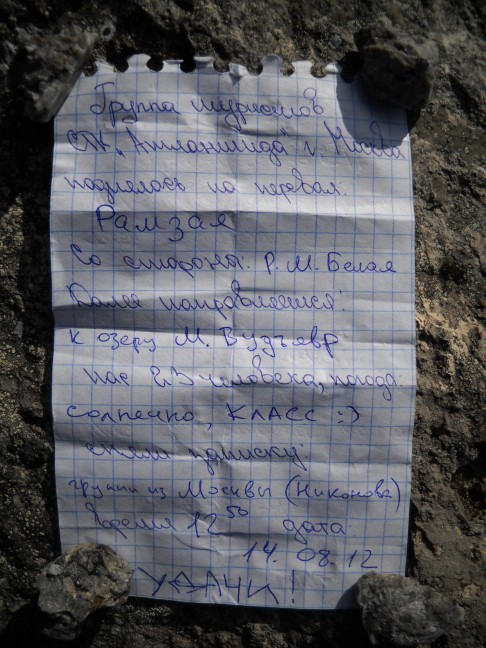 Группа туристов
СТК "Атлантида" г. Москва
поднялось на перевал
Рамзая
Со стороны: р. М. Белая
Далее направляемся:
к озеру М. Вудъявр
нас человека, погода:
солнечно, КЛАСС :)
сняли записку:
группы из Москвы (Никонова)
Время 12 50 дата
14. 08. 12
УДАЧИ!